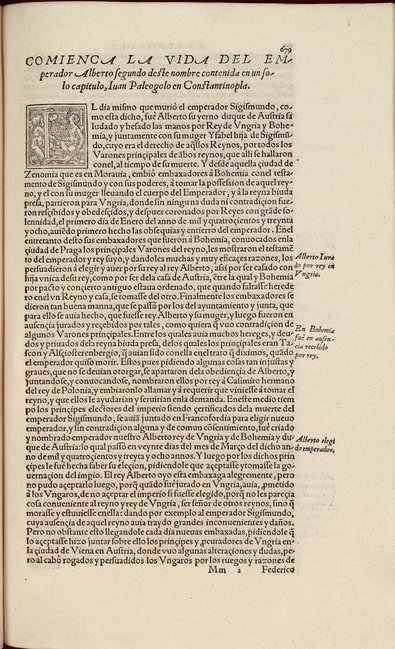 679
COMIENCA LA VIDA DEL EM-
perador Alberto segundo deste nombre contenida en un so-
lo capitulo, Iuan Paleogolo en Constantinopla.
EL dia mismo que murió el emperador Sigismundo, co-
mo esta dicho, fué Alberto su yerno duque de Austria sa
ludado y besado las manos por Rey de Vngria y Bohe-
mia, y juntamente con su muger Ysabel hija de Sigismũ
do, cuyo era el derecho de aq̃llos Reynos, por todos los
Varones principales de ãbos reynos, que alli se hallaron
conel, al tiempo de su muerte. Y desde aquella ciudad de
Zenomia que es en Morauia, embió embaxadores à Bohemia conel testa-
mento de Sigismundo y con sus poderes, à tomar la possession de aquel rey-
no, y el con su muger lleuando el cuerpo del Emperador, y à la reyna biuda
presa, partieron para Vngria, donde sin ninguna duda ni contradicion fue-
ron rescibidos y obedescidos, y despues coronados por Reyes con grãde so-
lennidad, el primero dia de Enero del año de mil y quatrocientos y treynta
y ocho, auiẽdo primero hecho las obsequias y entierro del emperador. En el
entretanto desto sus embaxadores que fueron à Bohemia, conuocados enla
ciudad de Praga los principales Varones del reyno, les mostraron el testamẽ
to del emperador y rey suyo, y dandoles muchas y muy eficaçes razones, los
persuadieron à elegir y auer por su rey al rey Alberto, assi por ser casado con
hija vnica de su rey, como por ser dela casa de Austria, ẽtre la qual y Bohemia
por pacto y concierto antiguo estaua ordenado, que quando faltasse herede
ro enel vn Reyno y casa, se tomasse del otro. Finalmente los embaxadores se
dieron tan buena manna, que se passó por los del ayuntamiento y junta, que
para ello se auia hecho, que fuesse rey Alberto y su muger, y luego fueron en
ausencia jurados y reçebidos por tales, como quiera q̃ vuo contradicion de
algunos Varones principales. Entre los quales auia muchos hereges, y deu-
dos y priuados dela reyna biuda presa, delos quales los principales eran Ta-
scon y Alsçiosterenbergio, q̃ auian sido conella enel trato q̃ diximos, quãdo
el emperador quiso morir. Estos pues pidiendo algunas cosas tan injustas y
graues, que no se deuian otorgar, se apartaron dela obediencia de Alberto, y
juntandose, y conuocandose, nombraron ellos por rey à Casimiro hermano
del rey de Polonia, y embiaronlo allamar y à requerir que viniesse à tomar el
reyno, y que ellos le ayudarian y seruirian enla demanda. En este medio tiem
po los principes electores del imperio siendo certificados dela muerte del
emperador Sigismundo, se auiã juntado en Francofordia para eligir nueuo
emperador, y sin contradicion alguna y de comun cõsentimiento, fuè criado
y nombrado emperador nuestro Alberto rey de Vngria y de Bohemia y du-
que de Austria: lo qual passó en veynte dias del mes de Março del dicho an-
no de mil y quatrocientos y treyta y ocho annos. Y luego por los dichos prin
çipes le fuè hecha saber su elecçion, pidiendole que açeptasse y tomasse la go-
uernaçion del impio. El rey Alberto oyó esta embaxada alegremente, pero
no pudo açeptarlo luego, porq̃ quãdo fuè jurado en Vngria, auia, ꝓmetido
à los Vngaros, de no aceptar el imperio si fuesse elegido, porq̃ no les pareçia
cosa conueniente al reyno y rey de Vngria, ser señor de otros reynos, sino q̃
morasse y estuuiesse enella: dando por exemplo al emperador Sigismundo,
cuya ausençia de aquel reyno auia traydo grandes inconuenientes y daños.
Pero no obstante esto llegandole cada dia nueuas embaxadas, pidiendole q̃
lo açeptasse hizo juntar sobre ello los prinçipes y ꝓcuradores de Vngria en-
la çiudad de Viena en Austria, donde vuo algunas alteraçiones y dudas, pe-
ro al cabo rogados y persuadidos los Vngaros por los ruegos y razones de
Mm a Federico
Alberto Iura
do por rey en
Vngria.
En Bohemia
fuè en ausen-
cia recebido
por rey.
Alberto elegi
do emperador.